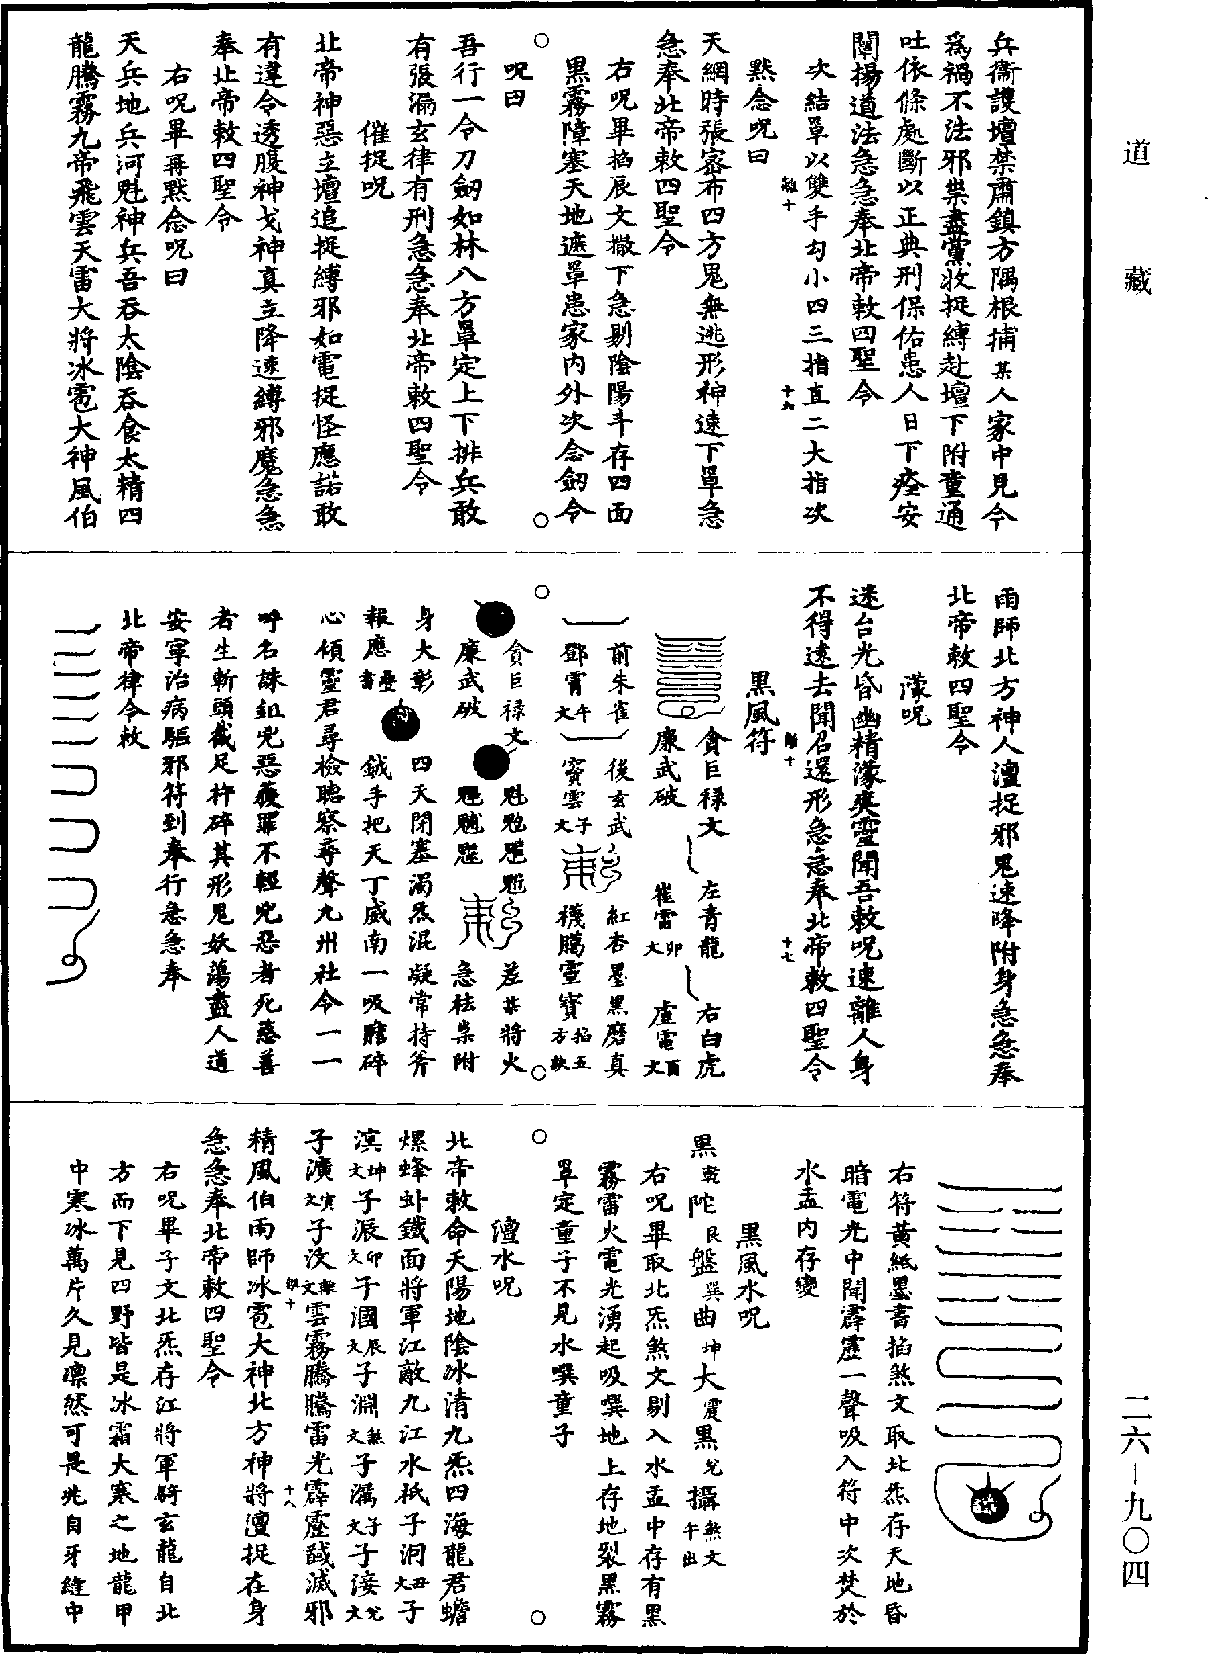 道藏
二六—九〇四
兵衛護壇禁肅鎮方隅根捕某人家中見令
為禍不法邪祟盡黨收捉縛赴壇下附童通
吐依條處斷以正典刑保佑患人日下痊安
闡揚道法急急奉北帝敕四聖令
次結罩以雙手勾小四三指直二大指次
默念呪曰
天網時張密布四方鬼無逃形神速下罩急
急奉北帝敕四聖令
右呪畢掐辰文撒下急剔陰陽斗存四面
黑霧障塞天地遮罩患家內外次念劒令
呪曰
吾行一令刀劒如林八方罩定上下排兵敢
有張漏玄律有刑急急奉北帝敕四聖令
催捉呪
北帝神惡立壇追捉縛邪如電捉怪應諾敢
有違令透腹神戈神真立降速縛邪魔急急
奉北帝敕四聖令
右呪畢再默念呪曰
天兵地兵河魁神兵吾吞太陰吞食太精四
龍騰霧九帝飛雲天雷大將冰雹大神風伯
雨師北方神人澶捉邪鬼速降附身急急奉
北帝敕四聖令
濛呪
迷台光昏幽精濛爽靈聞吾敕呪速離人身
不得遠去聞召還形急急奉北帝敕四聖令
黑風符
貪巨祿文 左青龍 右白虎
廉武破 崔雷卯文 盧電酉文
前朱雀 後玄武 紅杏墨黑磨真
鄧霄午文 寶雲子文 機騰靈寶掐五方訣
貪巨祿文 差某將火
廉武破 急祛祟附
身大彰 四天閉塞濁炁混凝常持斧
報應 鉞手把天丁威南一吸贍碎
心傾靈君尋檢聽察尋聲九州社令一一
呼名誅鉏兇惡獲罪不輕兇惡者死慈善
者生斬頭截足杵碎其形鬼妖蕩盡人道
安寧治病驅邪符到奉行急急奉
北帝律令敕
右符黃紙墨書掐煞文取北炁存天地昏
暗電光中聞霹靂一聲吸入符中次焚於
水盂內存變
黑風水呪
黑乾陀艮盤巽曲坤大震黑兌攝煞文午出
右呪畢取北炁煞文剔入水盂中存有黑
霧雷火電光湧起吸噀地上存地裂黑霧
罩定童子不見水噀童子
澶水呪
北帝敕命天陽地陰冰清九炁四海龍君蟾
螺蜂虯鐵面將軍江敵九江水祇子洞丑文子
溟坤文子派卯文子涸辰文子淵煞文子漏子文子淁兌文
子濱寅文子汶文雲霧騰騰雷光霹靂馘滅邪
精風伯雨師冰雹大神北方神將澶捉在身
急急奉北帝敕四聖令
右呪畢子文北炁存江將軍騎玄龍自北
方而下見四野皆是冰霜大寒之地龍甲
中寒冰萬片久見凜然可是兆自牙縫中